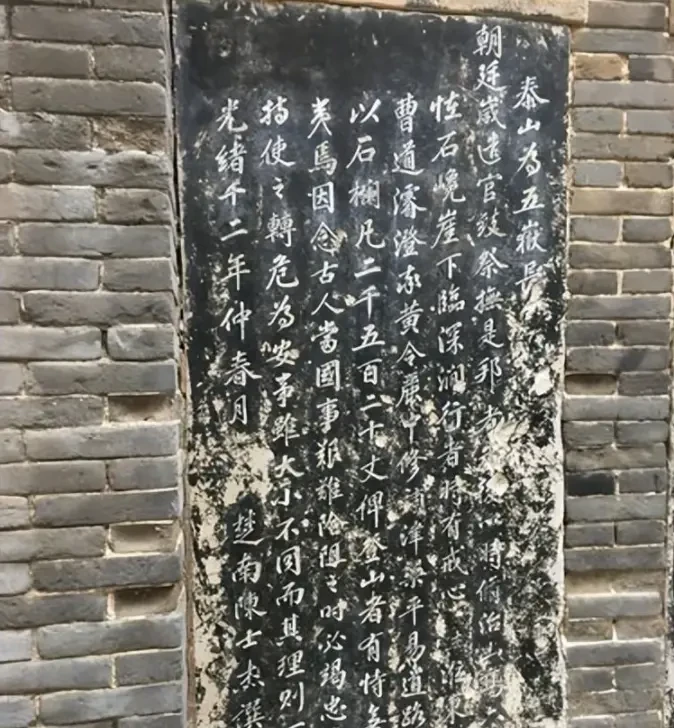 泰山為五嶽長
朝廷歲遣官致祭撫是邦者
怪石巉崖下臨深澗行者時有戒心
曹道濬澄亟黃令廉中修津梁平易道路
以石欄凡二千五百二十丈俾登山者有恃
夷焉因念古人當國事艱難險阻之時必竭忠
持使之轉危為安第雖大小不同而其理則
光緒十二年仲春月 楚南陳士杰撰